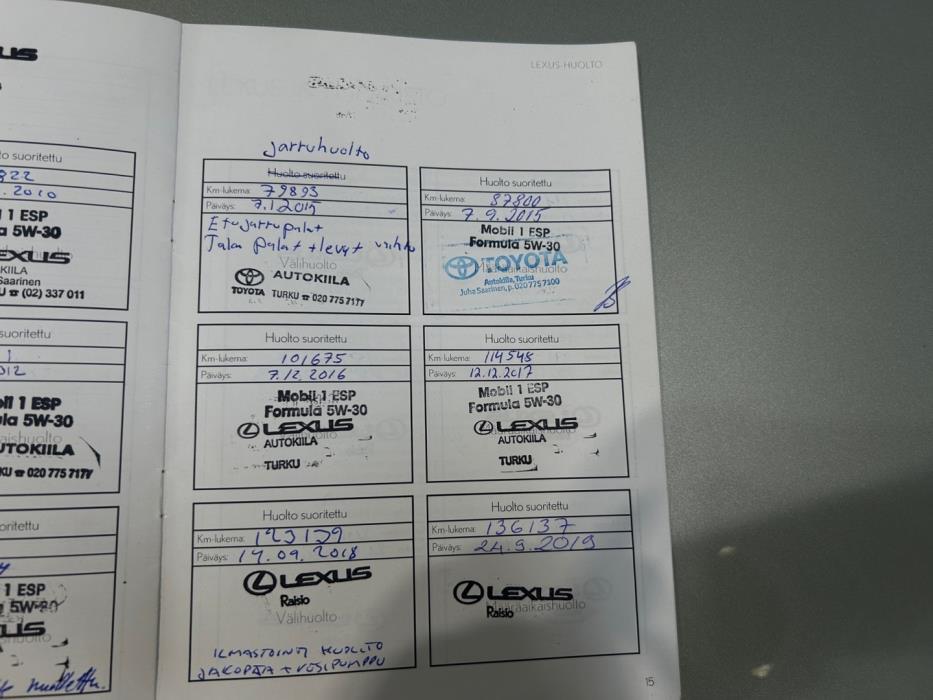 LEXUS-HUOLTO
Jarruhuolto
Huolto suoritettu
Km-lukema: 79893
Päiväys: 7.1.2015
Etujarrupalat
Taka palat + levyt
Välihuolto
TOYOTA AUTOKIILA
TURKU ☎ 020 775 7177
Huolto suoritettu
Km-lukema: 87800
Päiväys: 7.9.2015
Mobil 1 ESP
Formula 5W-30
TOYOTA
Määräaikaishuolto
Autokiila, Turku
Juha Saarinen, p. 020 775 7100
Huolto suoritettu
Km-lukema: 101675
Päiväys: 7.12.2016
Mobil 1 ESP
Formula 5W-30
LEXUS
Välihuolto
AUTOKIILA
TURKU
Huolto suoritettu
Km-lukema: 114548
Päiväys: 12.12.2017
Mobil 1 ESP
Formula 5W-30
LEXUS
AUTOKIILA
TURKU
Huolto suoritettu
Km-lukema: 123139
Päiväys: 14.09.2018
LEXUS
Raisio
Välihuolto
ILMASTOINTI HUOLTO
JAKOPÄÄ + VESIPUMPPU
Huolto suoritettu
Km-lukema: 136137
Päiväys: 24.9.2019
LEXUS
Raisio
Määräaikaishuolto
15
US
o suoritettu
822
.2010
1 ESP
a 5W-30
EXUS
KIILA
Saarinen
U ☎ (02) 337 011
suoritettu
1
012
bil 1 ESP
ula 5W-30
aikaishuolto
UTOKIILA
KU ☎ 020 775 7177
oritettu
1 ESP
5W-30
US
huolto